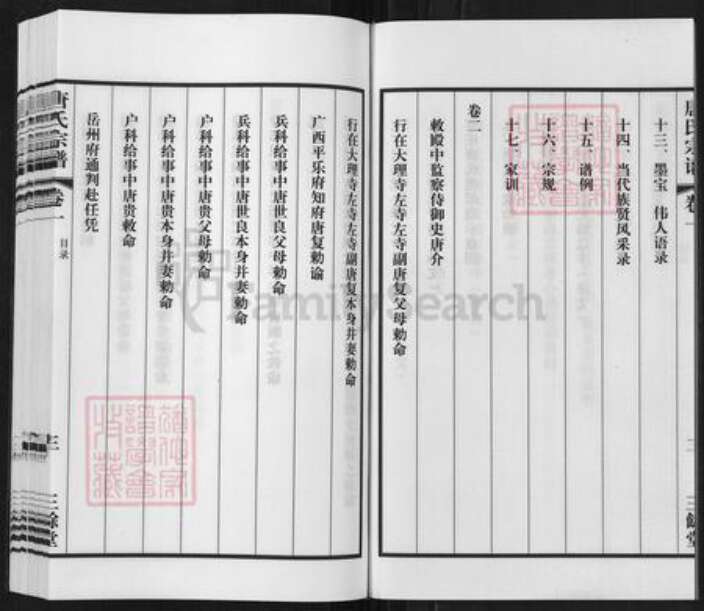 唐氏宗谱 卷一
二
三餘堂
十三、墨宝 伟人语录
十四、当代族贤风采录
十五、谱例
十六、宗规
十七、家训
卷二
敕殿中监察侍御史唐介
行在大理寺左寺左寺副唐复父母勅命
行在大理寺左寺左寺副唐复本身并妻勅命
广西平乐府知府唐复勅谕
兵科给事中唐世良父母勅命
兵科给事中唐世良本身并妻勅命
户科给事中唐贵父母勅命
户科给事中唐贵本身并妻勅命
户科给事中唐贵敕命
岳州府通判赴任凭
唐氏宗谱 卷一 目录
三
三餘堂
FamilySearch